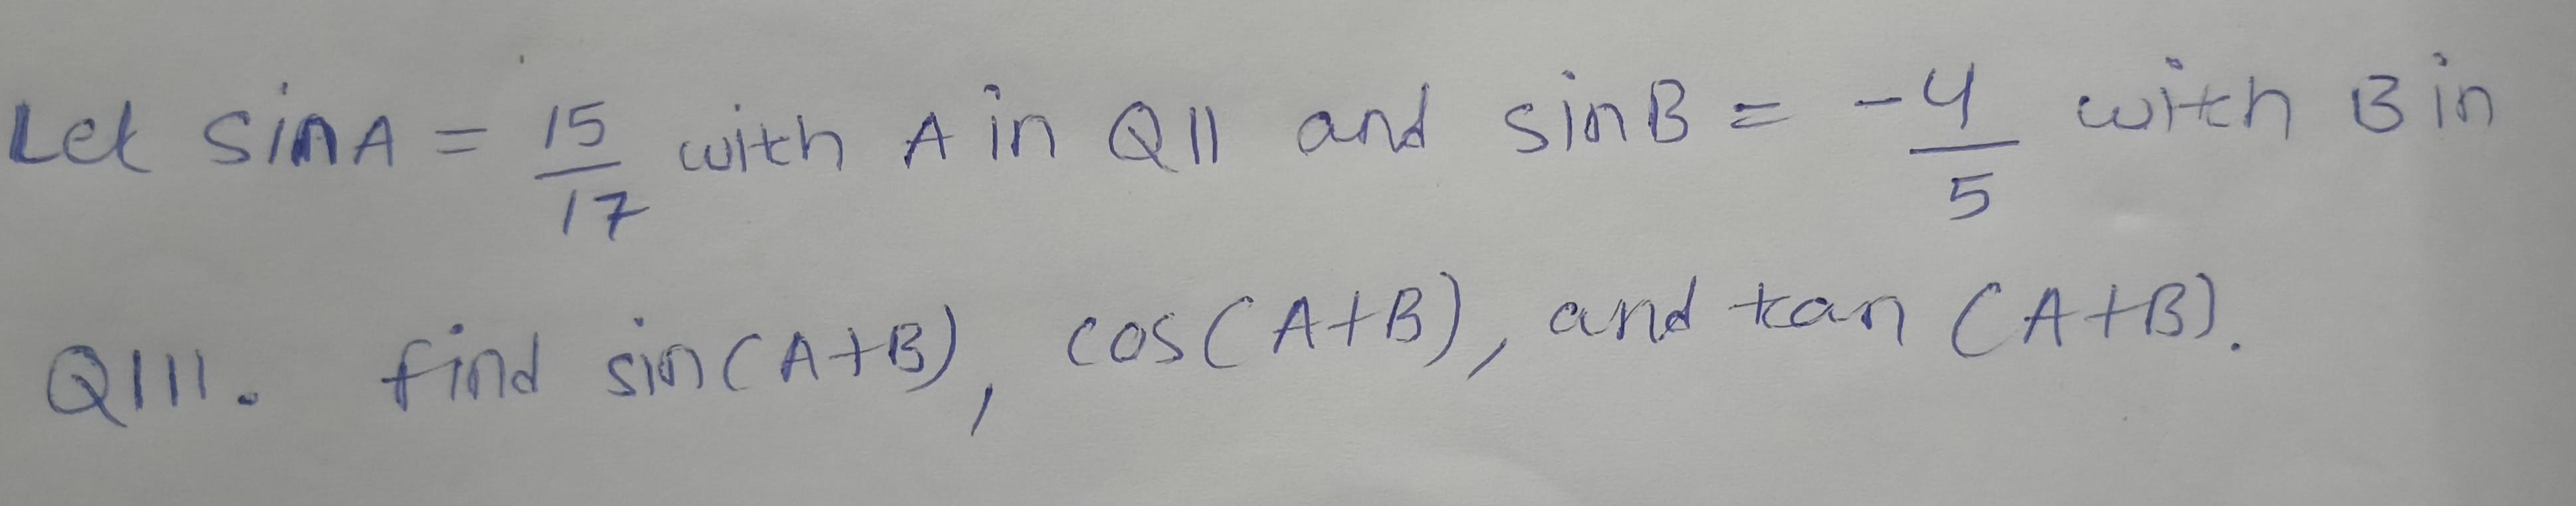 Let sinA = 15/17 with A in QII and sinB = -4/5 with B in
QIII. find sin(A+B), cos(A+B), and tan (A+B).